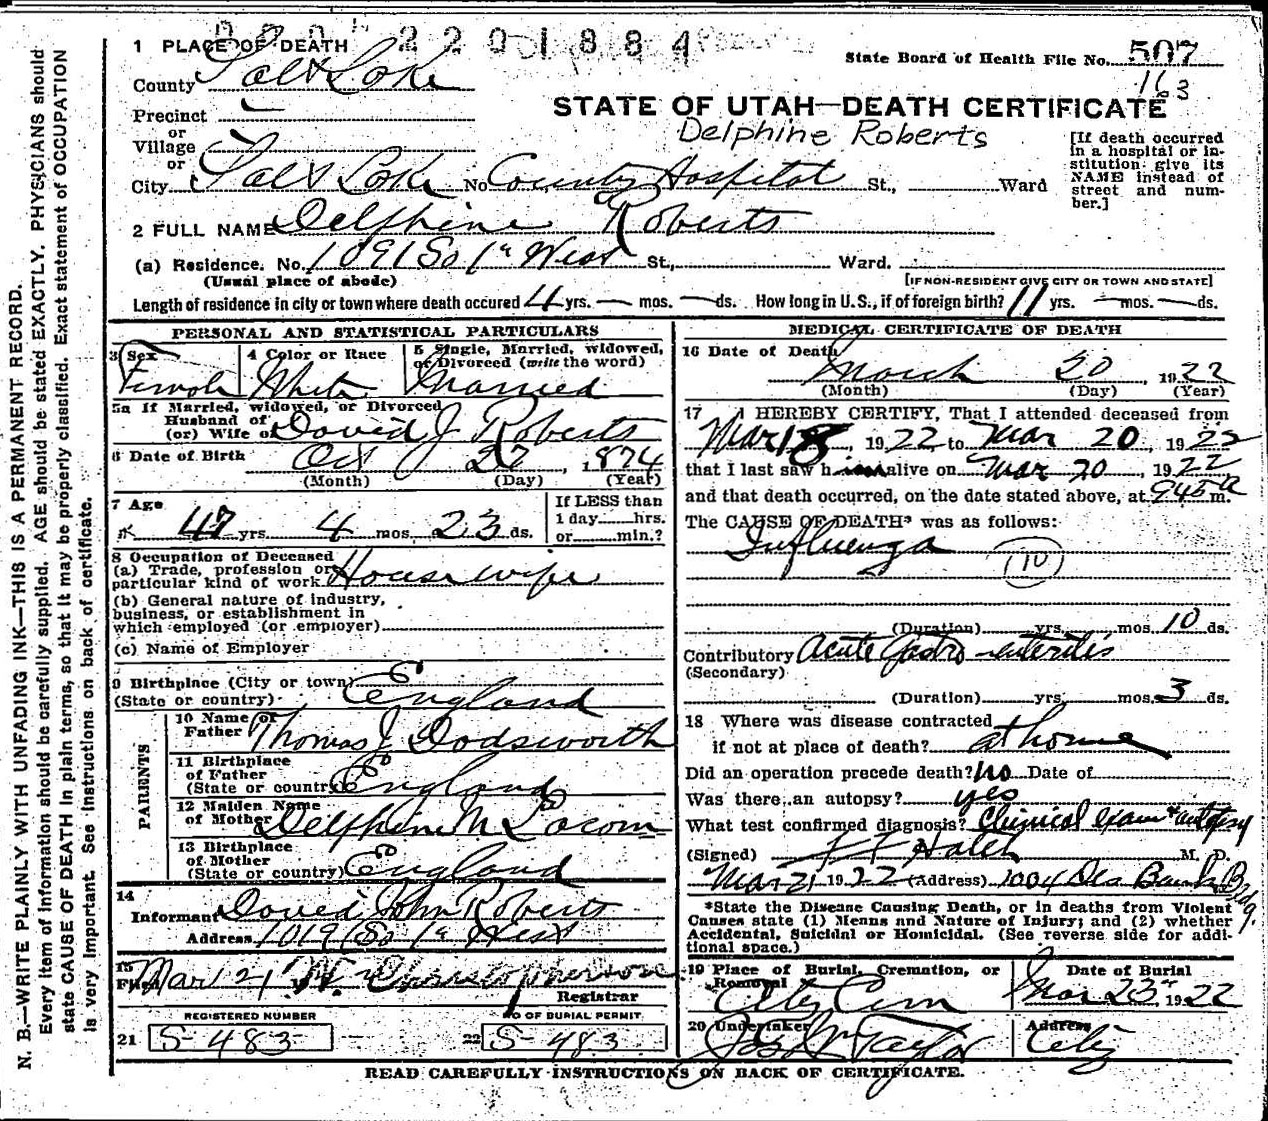 2201884
1 PLACE OF DEATH
State Board of Health File No. 507
County Salt Lake
163
STATE OF UTAH—DEATH CERTIFICATE
Precinct
or
Village
or
Delphine Roberts
[If death occurred in a hospital or institution give its NAME instead of street and number.]
City Salt Lake No County Hospital St., Ward
2 FULL NAME Delphine Roberts
(a) Residence. No. 1091 So 1st West St., Ward.
(Usual place of abode) [IF NON-RESIDENT GIVE CITY OR TOWN AND STATE]
Length of residence in city or town where death occured 4 yrs. — mos. — ds. How long in U. S., if of foreign birth? 11 yrs. — mos. — ds.
PERSONAL AND STATISTICAL PARTICULARS
3 Sex
Female
4 Color or Race
White
5 Single, Married, widowed, or Divorced (write the word)
Married
5a If Married, widowed, or Divorced
Husband of
(or) Wife of David J Roberts
6 Date of Birth Oct 27, 1874
(Month) (Day) (Year)
7 Age
47 yrs. 4 mos. 23 ds.
If LESS than
1 day hrs.
or min.?
8 Occupation of Deceased
(a) Trade, profession or
particular kind of work Housewife
(b) General nature of industry,
business, or establishment in
which employed (or employer)
(c) Name of Employer
9 Birthplace (City or town)
(State or country) England
PARENTS
10 Name of
Father Thomas J Dodsworth
11 Birthplace
of Father
(State or country) England
12 Maiden Name
of Mother Delphine M
13 Birthplace
of Mother
(State or country) England
14
Informant David John Roberts
Address 1019 So 1st West
15
Filed Mar 21 W. Christopherson
Registrar
REGISTERED NUMBER
21 S-483
NO OF BURIAL PERMIT
22 S-483
MEDICAL CERTIFICATE OF DEATH
16 Date of Death
March 20, 1922
(Month) (Day) (Year)
17 I HEREBY CERTIFY, That I attended deceased from
Mar 18, 1922 to Mar 20, 1922
that I last saw h alive on Mar 20, 1922
and that death occurred, on the date stated above, at 945 a m.
The CAUSE OF DEATH* was as follows:
Influenza
(10)
(Duration) yrs. mos. 10 ds.
Contributory Acute Gastro-enteritis
(Secondary)
(Duration) yrs. mos. 3 ds.
18 Where was disease contracted
if not at place of death? at home
Did an operation precede death? no Date of
Was there an autopsy? yes
What test confirmed diagnosis? Clinical exam & autopsy
(Signed) Hatch M. D.
Mar 21 1922 (Address) 1004 Des Bank Bldg.
*State the Disease Causing Death, or in deaths from Violent
Causes state (1) Menns and Nature of Injury; and (2) whether
Accidental, Suicidal or Homicidal. (See reverse side for addi-
tional space.)
19 Place of Burial, Cremation, or
Removal
City Cem
Date of Burial
Mar 23rd 1922
20 Undertaker
Jos Wm Taylor
Address
City
READ CAREFULLY INSTRUCTIONS ON BACK OF CERTIFICATE.
N. B.—WRITE PLAINLY WITH UNFADING INK—THIS IS A PERMANENT RECORD.
Every item of information should be carefully supplied. AGE should be stated EXACTLY. PHYSICIANS should
state CAUSE OF DEATH in plain terms, so that it may be properly classified. Exact statement of OCCUPATION
is very important. See instructions on back of certificate.